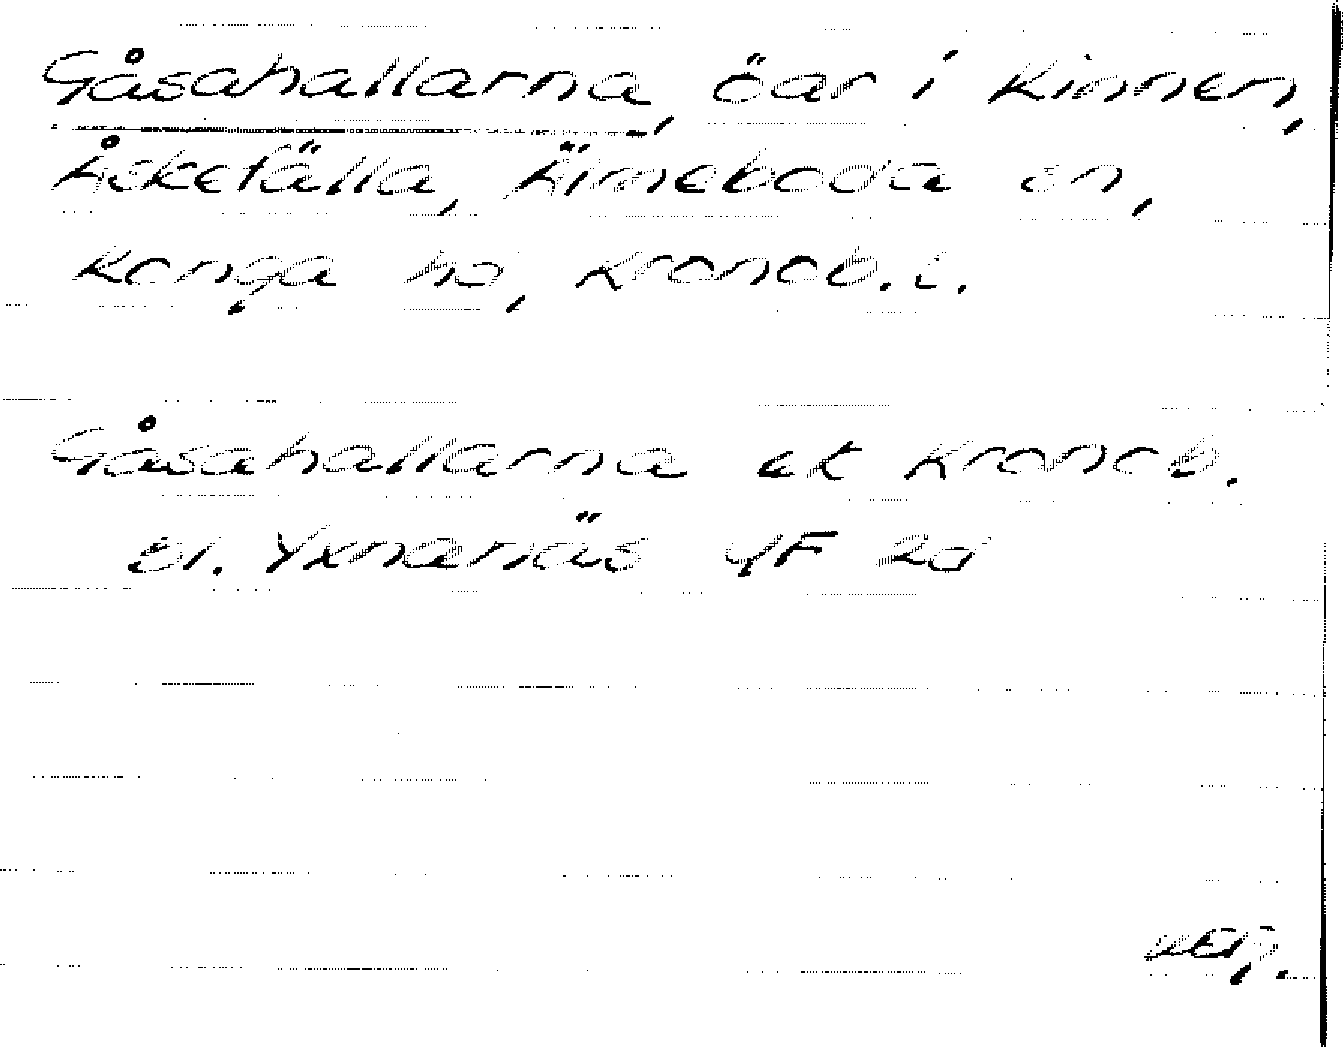 Gåsahallarna, öar i Kinnen,
Åskefälla, Älmeboda sn,
Konga hd, Kronob. l.
Gåsahallarna ek Kronob.
bl. Yxnanäs 4F 2d